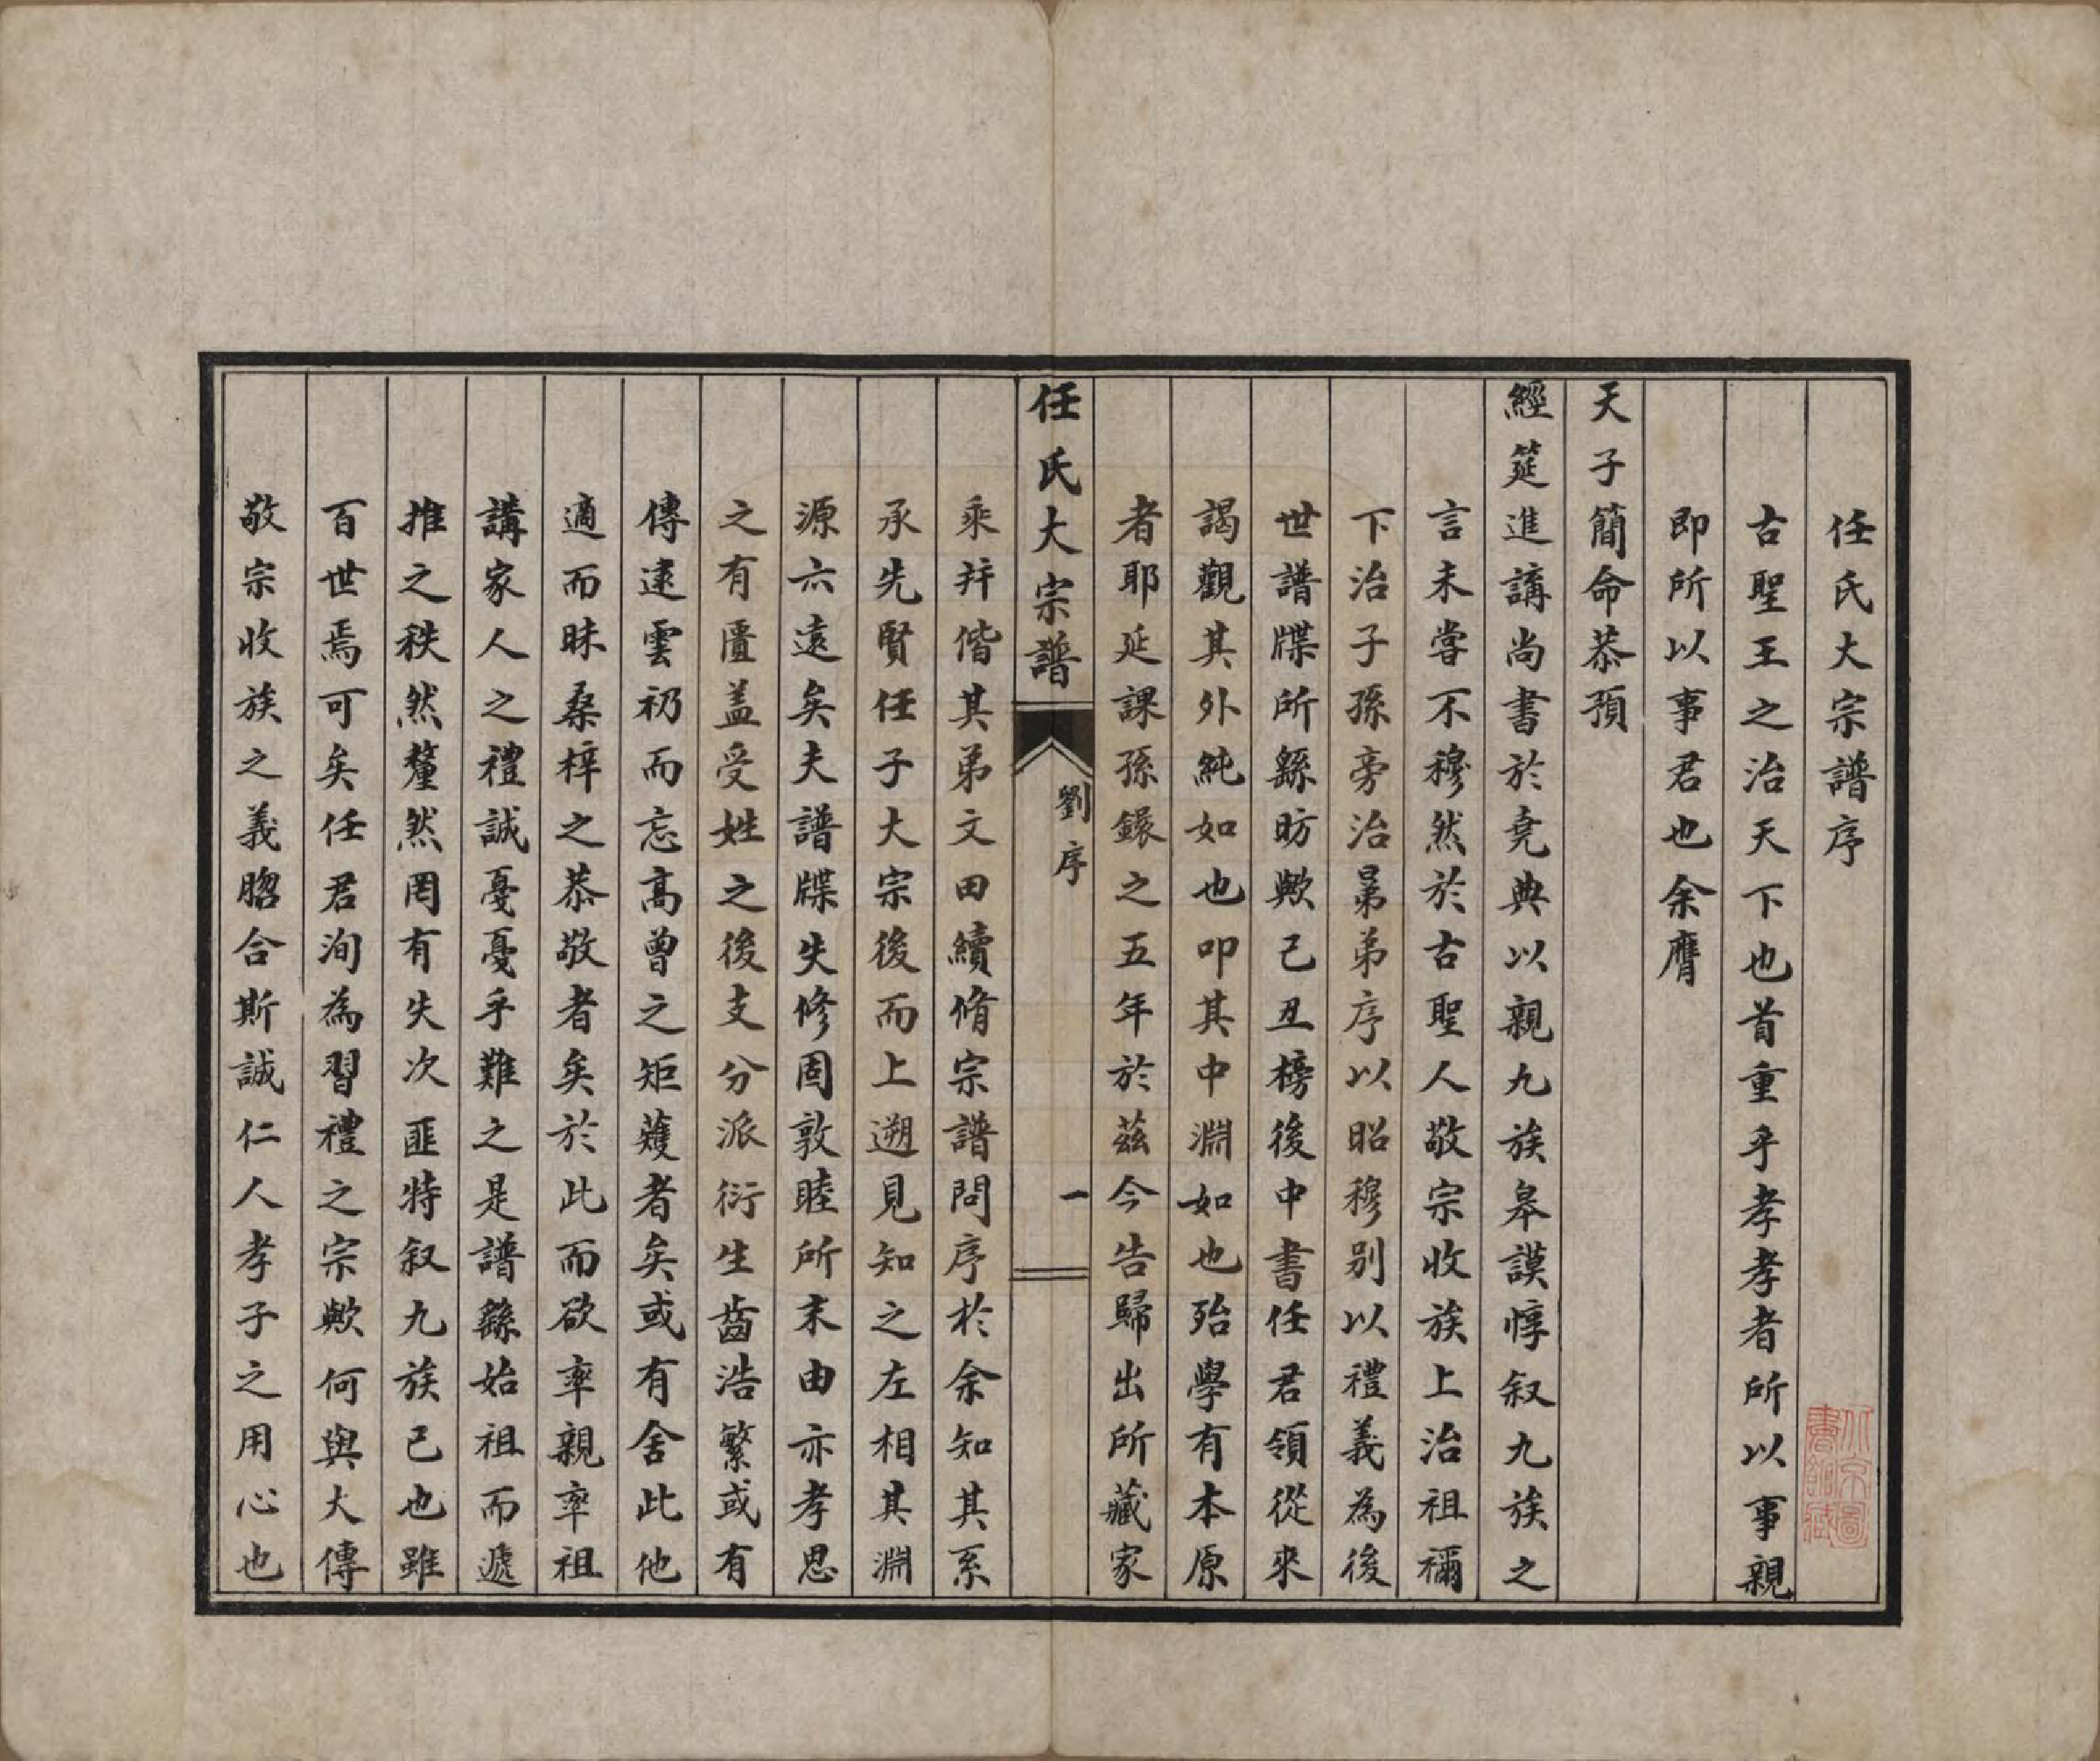 任氏大宗譜序
古聖王之治天下也首重乎孝孝者所以事親
即所以事君也余膺
天子簡命恭預
經筵進講尚書於堯典以親九族皋謨惇叙九族之
言未嘗不穆然於古聖人敬宗收族上治祖禰
下治子孫旁治晜弟序以昭穆別以禮義為後
世譜牒所繇昉歟己丑榜後中書任君領從來
謁觀其外純如也叩其中淵如也殆學有本原
者耶延課孫鎄之五年於茲今告歸出所藏家
任氏大宗譜
劉序
一
乘并偕其弟文田續脩宗譜問序於余知其系
承先賢任子大宗後而上遡見知之左相其淵
源六遠矣夫譜牒失修固敦睦所末由亦孝思
之有匱盖受姓之後支分派衍生齒浩繁或有
傳逮雲礽而忘高曾之矩蒦者矣或有舍此他
適而昧桑梓之恭敬者矣於此而欲率親率祖
講家人之禮誠戛戛乎難之是譜繇始祖而遞
推之秩然釐然罔有失次匪特叙九族已也雖
百世焉可矣任君洵為習禮之宗歟何與大傳
敬宗收族之義脗合斯誠仁人孝子之用心也
北京圖
書館藏